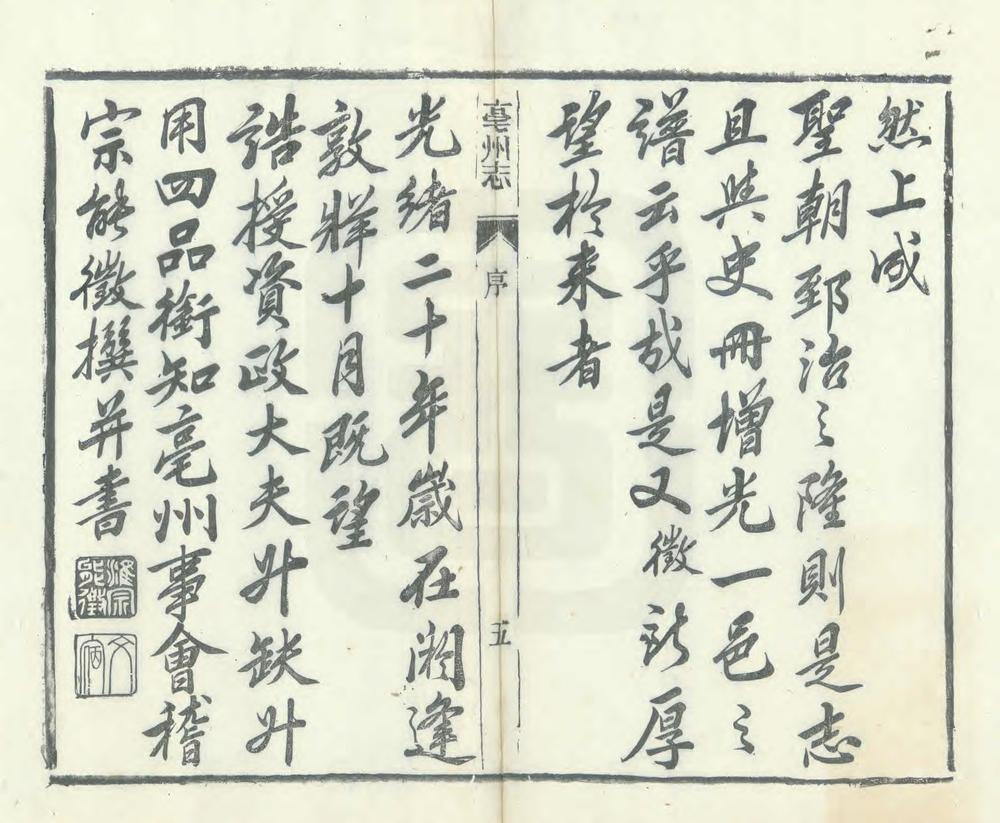 然上成
聖朝郅治之隆則是志
且與史冊增光一邑之
譜云乎哉是又徵所厚
望於来者
亳州志
序
五
光緒二十年歲在閼逢
敦牂十月既望
誥授資政大夫升缺升
用四品銜知亳州事會稽
宗能徵撰并書